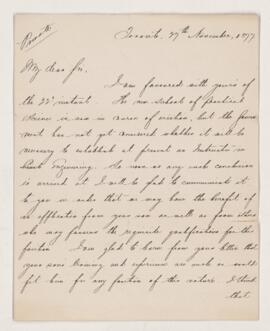 Private
Toronto, 27th November, 1877
My dear Sir,
I am favoured with yours of
the 22nd instant. The new school of practical
Science is now in course of erection, but the Govern
ment has not yet considered whether it will be
necessary to establish at present an Instructor in
Engineering. As soon as any such conclusion
is arrived at I will be glad to communicate it
to you in order that we may have the benefit of
an application from your son as well as from others
who may possess the requisite qualifications for the
position. I am glad to learn from your letter that
your sons training and experience are such as would
fit him for any position of this nature. I think
that